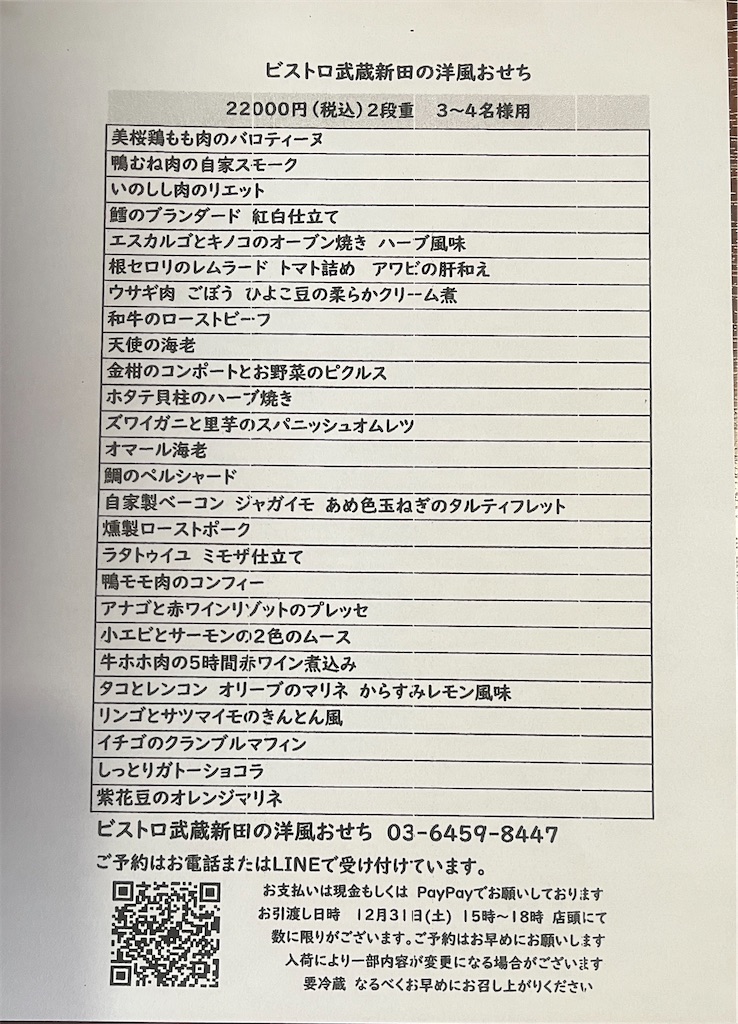 ビストロ武蔵新田の洋風おせち
22000円(税込)2段重　3～4名様用
美桜鶏もも肉のバロティーヌ
鴨むね肉の自家スモーク
いのしし肉のリエット
鱈のブランダード 紅白仕立て
エスカルゴとキノコのオーブン焼き ハーブ風味
根セロリのレムラード トマト詰め　アワビの肝和え
ウサギ肉 ごぼう ひよこ豆の柔らかクリーム煮
和牛のローストビーフ
天使の海老
金柑のコンポートとお野菜のピクルス
ホタテ貝柱のハーブ焼き
ズワイガニと里芋のスパニッシュオムレツ
オマール海老
鯛のペルシャード
自家製ベーコン ジャガイモ あめ色玉ねぎのタルティフレット
燻製ローストポーク
ラタトゥイユ ミモザ仕立て
鴨モモ肉のコンフィー
アナゴと赤ワインリゾットのプレッセ
小エビとサーモンの2色のムース
牛ホホ肉の5時間赤ワイン煮込み
タコとレンコン オリーブのマリネ からすみレモン風味
リンゴとサツマイモのきんとん風
イチゴのクランブルマフィン
しっとりガトーショコラ
紫花豆のオレンジマリネ
ビストロ武蔵新田の洋風おせち 03-6459-8447
ご予約はお電話またはLINEで受け付けています。
お支払いは現金もしくは PayPayでお願いしております
お引渡し日時　12月31日(土) 15時～18時 店頭にて
数に限りがございます。ご予約はお早めにお願いします
入荷により一部内容が変更になる場合がございます
要冷蔵 なるべくお早めにお召し上がりください